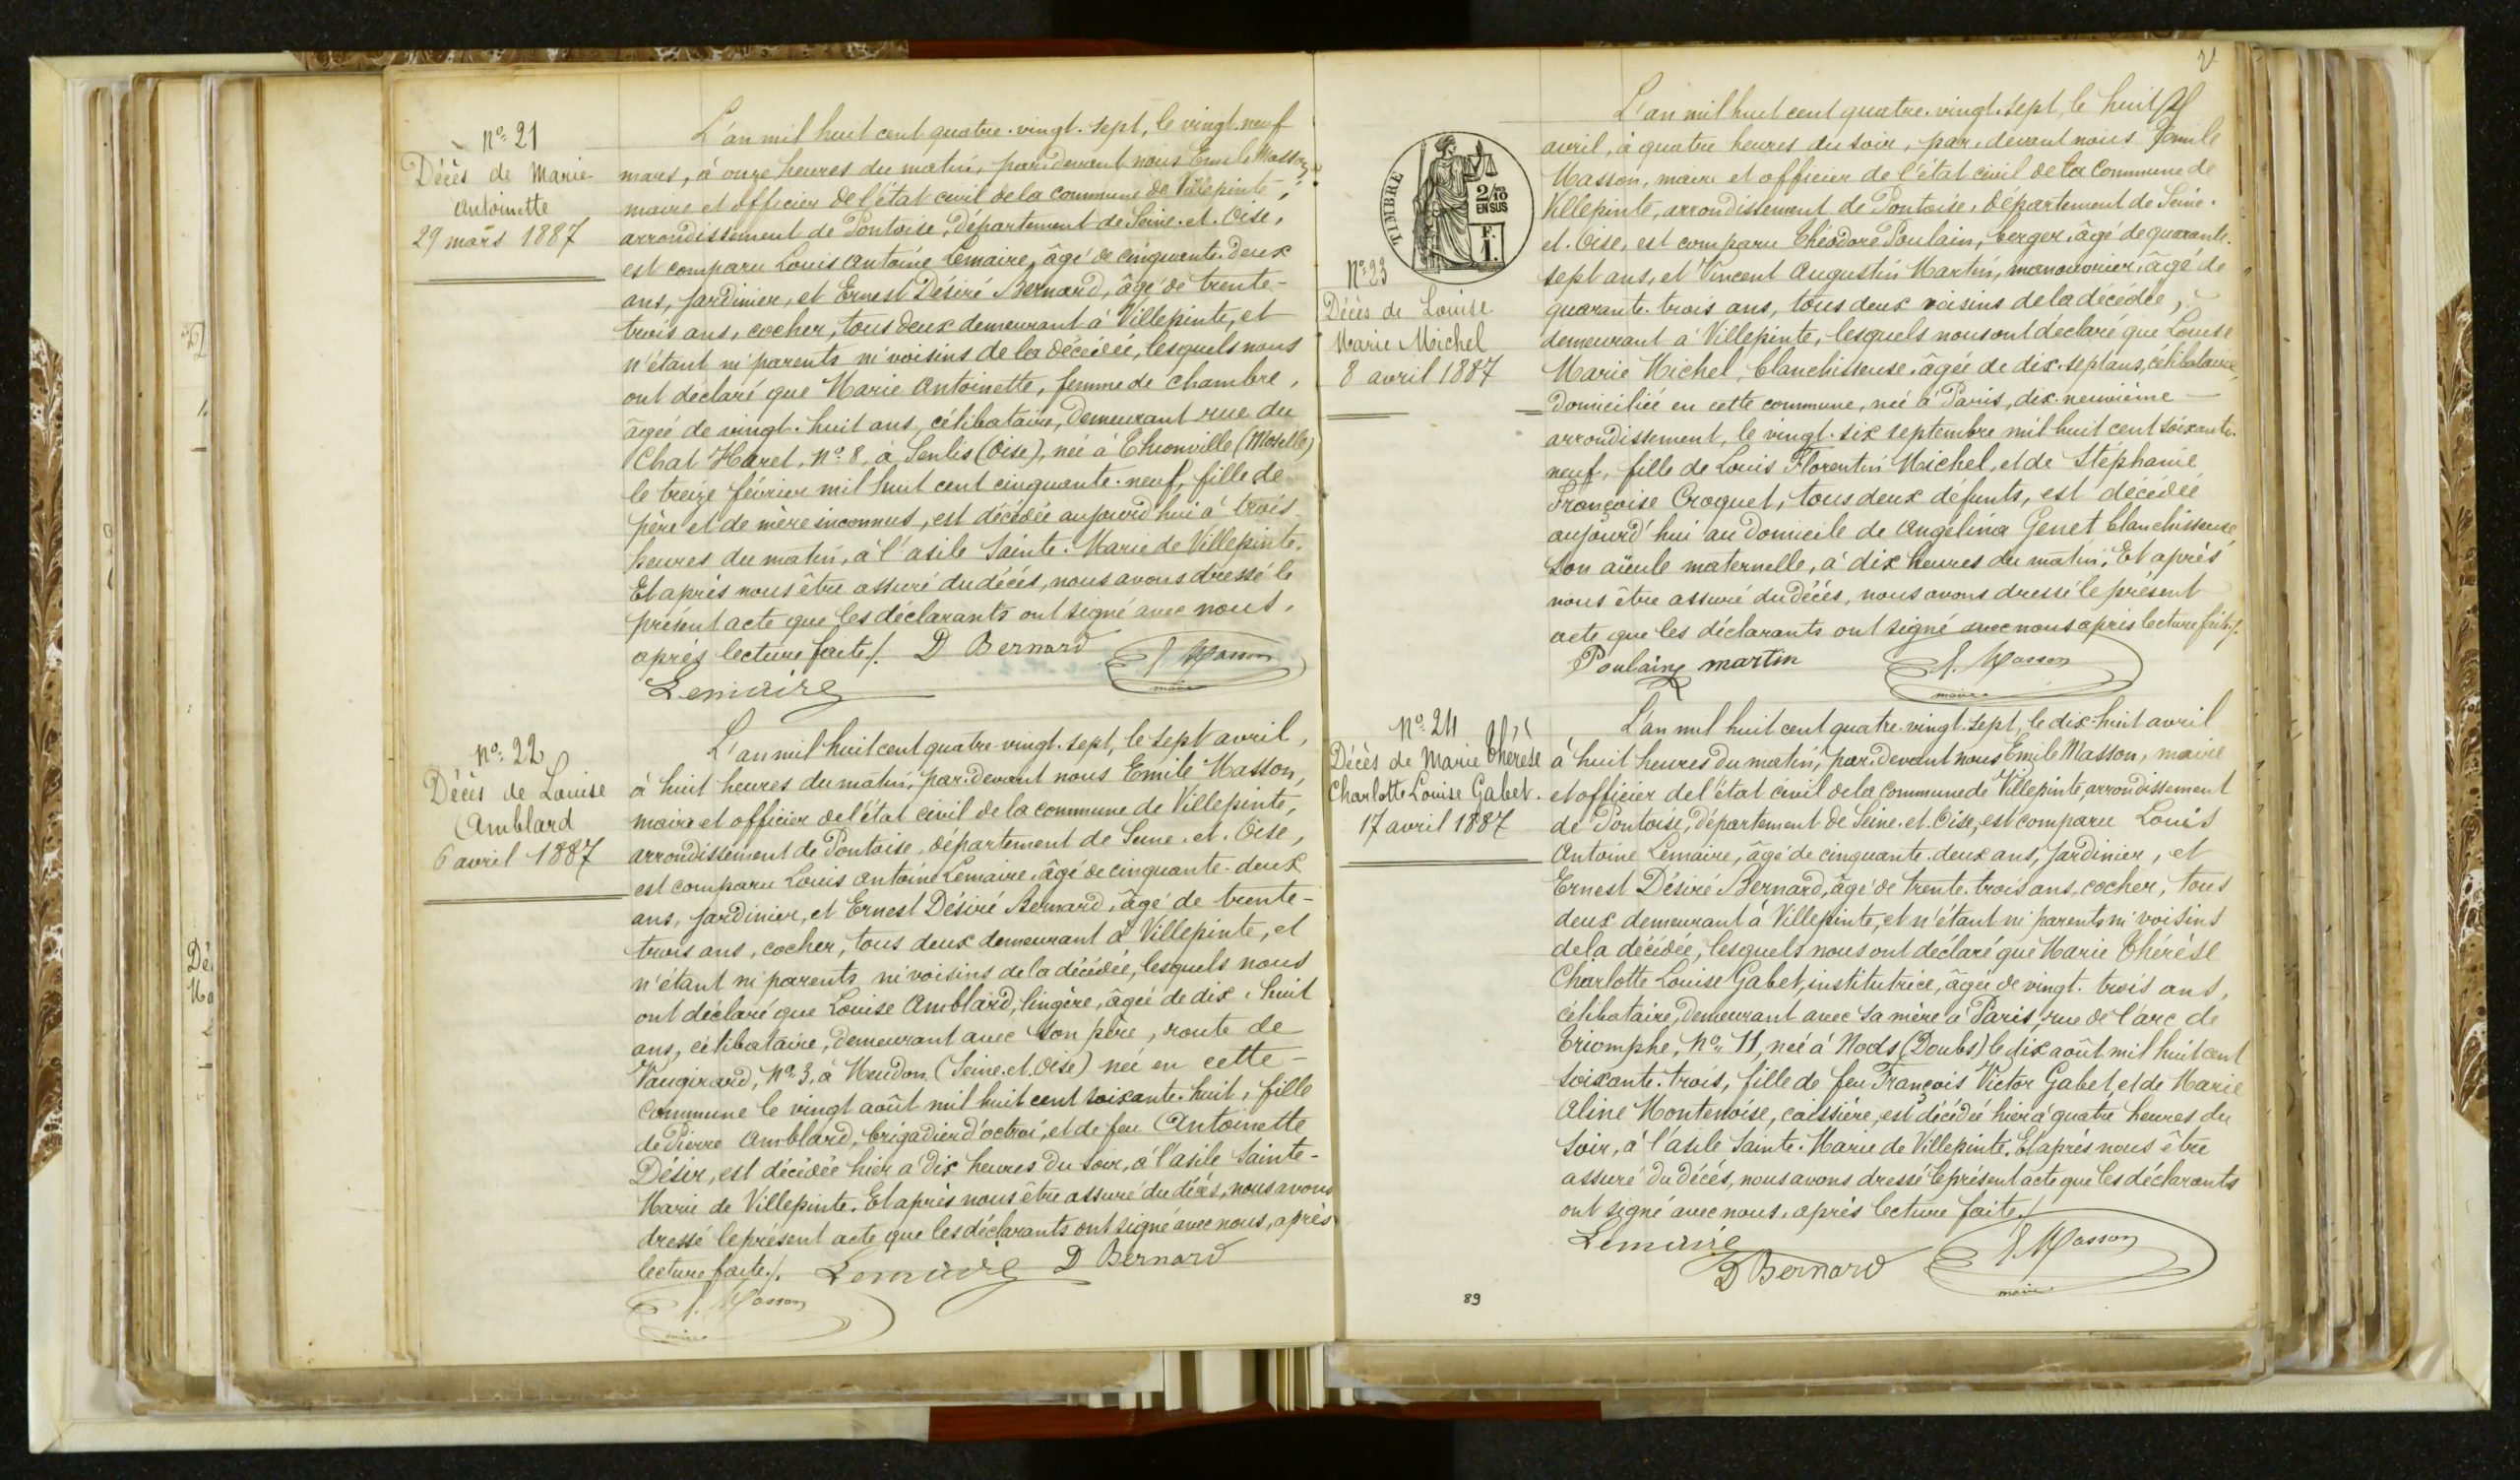 Nº 21
Décès de Marie
Antoinette
29 mars 1887
L'an mil huit cent quatre-vingt-sept, le vingt-neuf
mars, à onze heures du matin, par-devant nous Emile Masson,
maire et officier de l'état civil de la commune de Villepinte,
arrondissement de Pontoise, département de Seine-et-Oise,
est comparu Louis Antoine Lemaire, âgé de cinquante-deux
ans, jardinier, et Ernest Désiré Bernard, âgé de trente-
trois ans, cocher, tous deux demeurant à Villepinte, et
n'étant ni parents ni voisins de la décédée, lesquels nous
ont déclaré que Marie Antoinette, femme de chambre,
âgée de vingt-huit ans, célibataire, demeurant rue du
Chat Haret, Nº 8, à Senlis (Oise), née à Thionville (Moselle)
le treize février mil huit cent cinquante-neuf, fille de
père et de mère inconnus, est décédée aujourd'hui à trois
heures du matin, à l'asile Sainte-Marie de Villepinte.
Et après nous être assuré du décès, nous avons dressé le
présent acte que les déclarants ont signé avec nous,
après lecture faite /. D Bernard E. Masson
Lemaire maire
Nº 22
Décès de Louise
Amblard
6 avril 1887
L'an mil huit cent quatre-vingt-sept, le sept avril,
à huit heures du matin, par-devant nous Emile Masson,
maire et officier de l'état civil de la commune de Villepinte,
arrondissement de Pontoise, département de Seine-et-Oise,
est comparu Louis Antoine Lemaire, âgé de cinquante-deux
ans, jardinier, et Ernest Désiré Bernard, âgé de trente-
trois ans, cocher, tous deux demeurant à Villepinte, et
n'étant ni parents ni voisins de la décédée, lesquels nous
ont déclaré que Louise Amblard, lingère, âgée de dix-huit
ans, célibataire, demeurant avec son père, route de
Vaugirard, Nº 3, à Meudon (Seine-et-Oise) née en cette
commune le vingt août mil huit cent soixante-huit, fille
de Pierre Amblard, brigadier d'octroi, et de feu Antoinette
Désir, est décédée hier à dix heures du soir, à l'asile Sainte-
Marie de Villepinte. Et après nous être assuré du décès, nous avons
dressé le présent acte que les déclarants ont signé avec nous, après
lecture faite /. Lemaire D Bernard
E. Masson
maire
TIMBRE
2/10
EN SUS
F.
1.
Nº 23
Décès de Louise
Marie Michel
8 avril 1887
L'an mil huit cent quatre-vingt-sept, le huit
avril, à quatre heures du soir, par-devant nous Emile
Masson, maire et officier de l'état civil de la commune de
Villepinte, arrondissement de Pontoise, département de Seine-
et-Oise, est comparu Théodore Poulain, berger, âgé de quarante-
sept ans, et Vincent Augustin Martin, manouvrier, âgé de
quarante-trois ans, tous deux voisins de la décédée,
demeurant à Villepinte, lesquels nous ont déclaré que Louise
Marie Michel, blanchisseuse, âgée de dix-sept ans, célibataire,
domiciliée en cette commune, née à Paris, dix-neuvième
arrondissement, le vingt-six septembre mil huit cent soixante-
neuf, fille de Louis Florentin Michel, et de Stéphanie
Françoise Croquet, tous deux défunts, est décédée
aujourd'hui au domicile de Angélina Genet blanchisseuse,
son aïeule maternelle, à dix heures du matin. Et après
nous être assuré du décès, nous avons dressé le présent
acte que les déclarants ont signé avec nous après lecture faite /.
Poulain martin E. Masson
maire
Nº 24
Décès de Marie Thérèse
Charlotte Louise Gabet.
17 avril 1887
L'an mil huit cent quatre-vingt-sept, le dix-huit avril
à huit heures du matin, par-devant nous Emile Masson, maire
et officier de l'état civil de la commune de Villepinte, arrondissement
de Pontoise, département de Seine-et-Oise, est comparu Louis
Antoine Lemaire, âgé de cinquante-deux ans, jardinier, et
Ernest Désiré Bernard, âgé de trente-trois ans, cocher, tous
deux demeurant à Villepinte, et n'étant ni parents ni voisins
de la décédée, lesquels nous ont déclaré que Marie Thérèse
Charlotte Louise Gabet, institutrice, âgée de vingt-trois ans,
célibataire, demeurant avec sa mère à Paris, rue de l'arc de
Triomphe, Nº 11, née à Nods (Doubs) le dix août mil huit cent
soixante-trois, fille de feu François Victor Gabet et de Marie
Aline Montenoise, caissière, est décédée hier à quatre heures du
soir, à l'asile Sainte-Marie de Villepinte. Et après nous être
assuré du décès, nous avons dressé le présent acte que les déclarants
ont signé avec nous, après lecture faite /.
Lemaire E. Masson
D Bernard maire
89